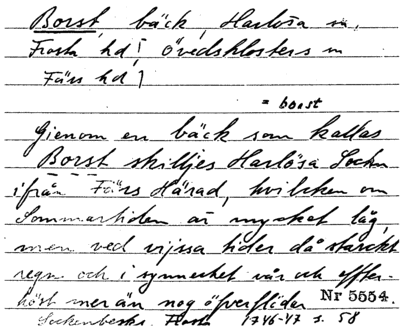 Borst, bäck, Harlösa sn,
Frosta hd! Övedsklosters sn
Färs hd!
= borst
Gienom en bäck som kallas
Borst skilljes Harlösa Sockn
ifrån Färs Härad, hvilcken om
Sommartiden är mycket låg,
men ved vijssa tider då starckt
regn och i synnerhet vår och effter-
höst mer än nog öfverflöder Nr 5554.
Sockenbeskr. Frosta 1746-47 s. 58